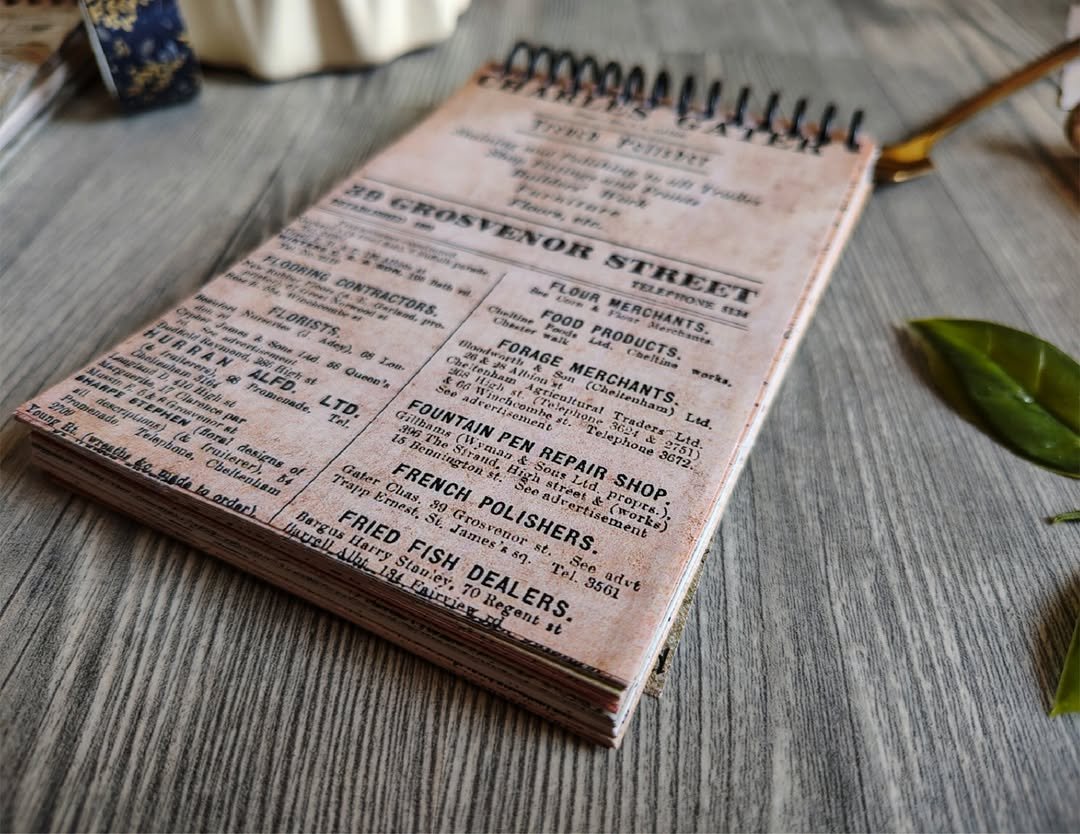 CHARLES GATER
French Polisher
Staining and Polishing to all Trades
Shop Fittings and Fronts
Builders' Work
Furniture
Floors, etc.
39 GROSVENOR STREET
TELEPHONE
FLOORING CONTRACTORS.
FLORISTS.
Cypher James & Sons Ltd. 68 Queen's
See advertisement
HURRAN ALFD. LTD.
(& fruiterers), 48 Promenade. Tel.
Cheltenham
410 High st
SHARPE STEPHEN (floral designs of
all descriptions) (& fruiterer), 54
Promenade, Cheltenham. Telephone,
2706
(wreaths &c. made to order)
FLOUR MERCHANTS.
See Corn & Flour Merchants.
FOOD PRODUCTS.
Cheltine Foods Ltd. Cheltine works,
Chester walk
FORAGE MERCHANTS.
Bloodworth & Son (Cheltenham) Ltd.
26 & 28 Albion st
Cheltenham Agricultural Traders Ltd.
268 High st. (Telephone 3624 & 2751)
& 66 Winchcombe st. Telephone 3672.
See advertisement
FOUNTAIN PEN REPAIR SHOP.
Gilhams (Wyman & Sons Ltd. proprs.),
396 The Strand, High street & (works)
15 Bennington st. See advertisement
FRENCH POLISHERS.
Gater Chas. 39 Grosvenor st. See advt
Trapp Ernest, St. James's sq. Tel. 3561
FRIED FISH DEALERS.
Bargus Harry Stanley, 70 Regent st
Burrell Albt. 184 Fairview rd